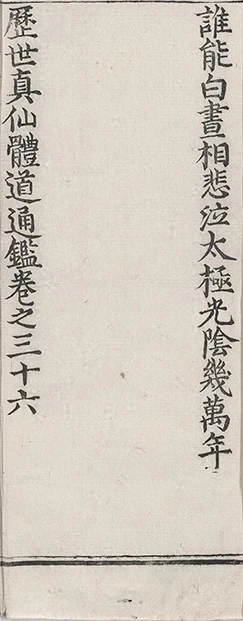 誰能白晝相悲泣太極光陰幾萬年
歷世真仙體道通鑑卷之三十六